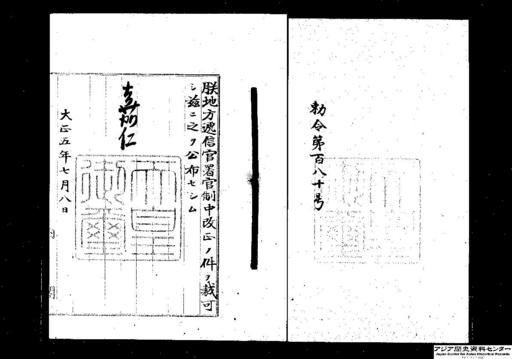 勅令第百八十号
朕地方逓信官署官制中改正ノ件ヲ裁可
シ茲ニ之ヲ公布セシム
嘉仁
天皇
御璽
大正五年七月八日
アジア歴史資料センター
Japan Center for Asian Historical Records